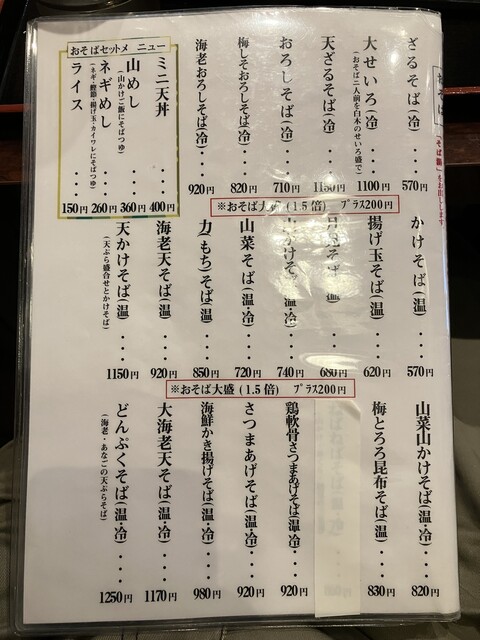 おそば
「そば湯」をお出しします
ざるそば(冷)・・・570円
大せいろ(冷)・・・1100円
(おそば二人前を白木のせいろ盛で)
天ざるそば(冷)・・・1150円
おろしそば(冷)・・・710円
梅しそおろしそば(冷)・・・820円
海老おろしそば(冷)・・・920円
おそばセットメニュー
ミニ天丼・・・・400円
山めし・・・・360円
(山かけご飯にそばつゆ)
ネギめし・・・・260円
(ネギ・鰹節・揚げ玉・カイワレにそばつゆ)
ライス・・・・150円
※おそば大盛(1.5倍) プラス200円
かけそば(温)・・・570円
揚げ玉そば(温)・・・620円
月見そば(温)・・・680円
山かけそば(温・冷)・・・740円
山菜そば(温・冷)・・・720円
力(もち)そば(温)・・・850円
海老天そば(温)・・・920円
天かけそば(温)・・・1150円
(天ぷら盛合せとかけそば)
※おそば大盛(1.5倍) プラス200円
山菜山かけそば(温・冷)・・・820円
梅とろろ昆布そば(温)・・・830円
鶏軟骨さつまあげそば(温・冷)・・・920円
さつまあげそば(温・冷)・・・920円
海鮮かき揚げそば(温・冷)・・・980円
大海老天そば(温・冷)・・・1170円
どんぷくそば(温・冷)・・・・1250円
(海老・あなごの天ぷらそば)